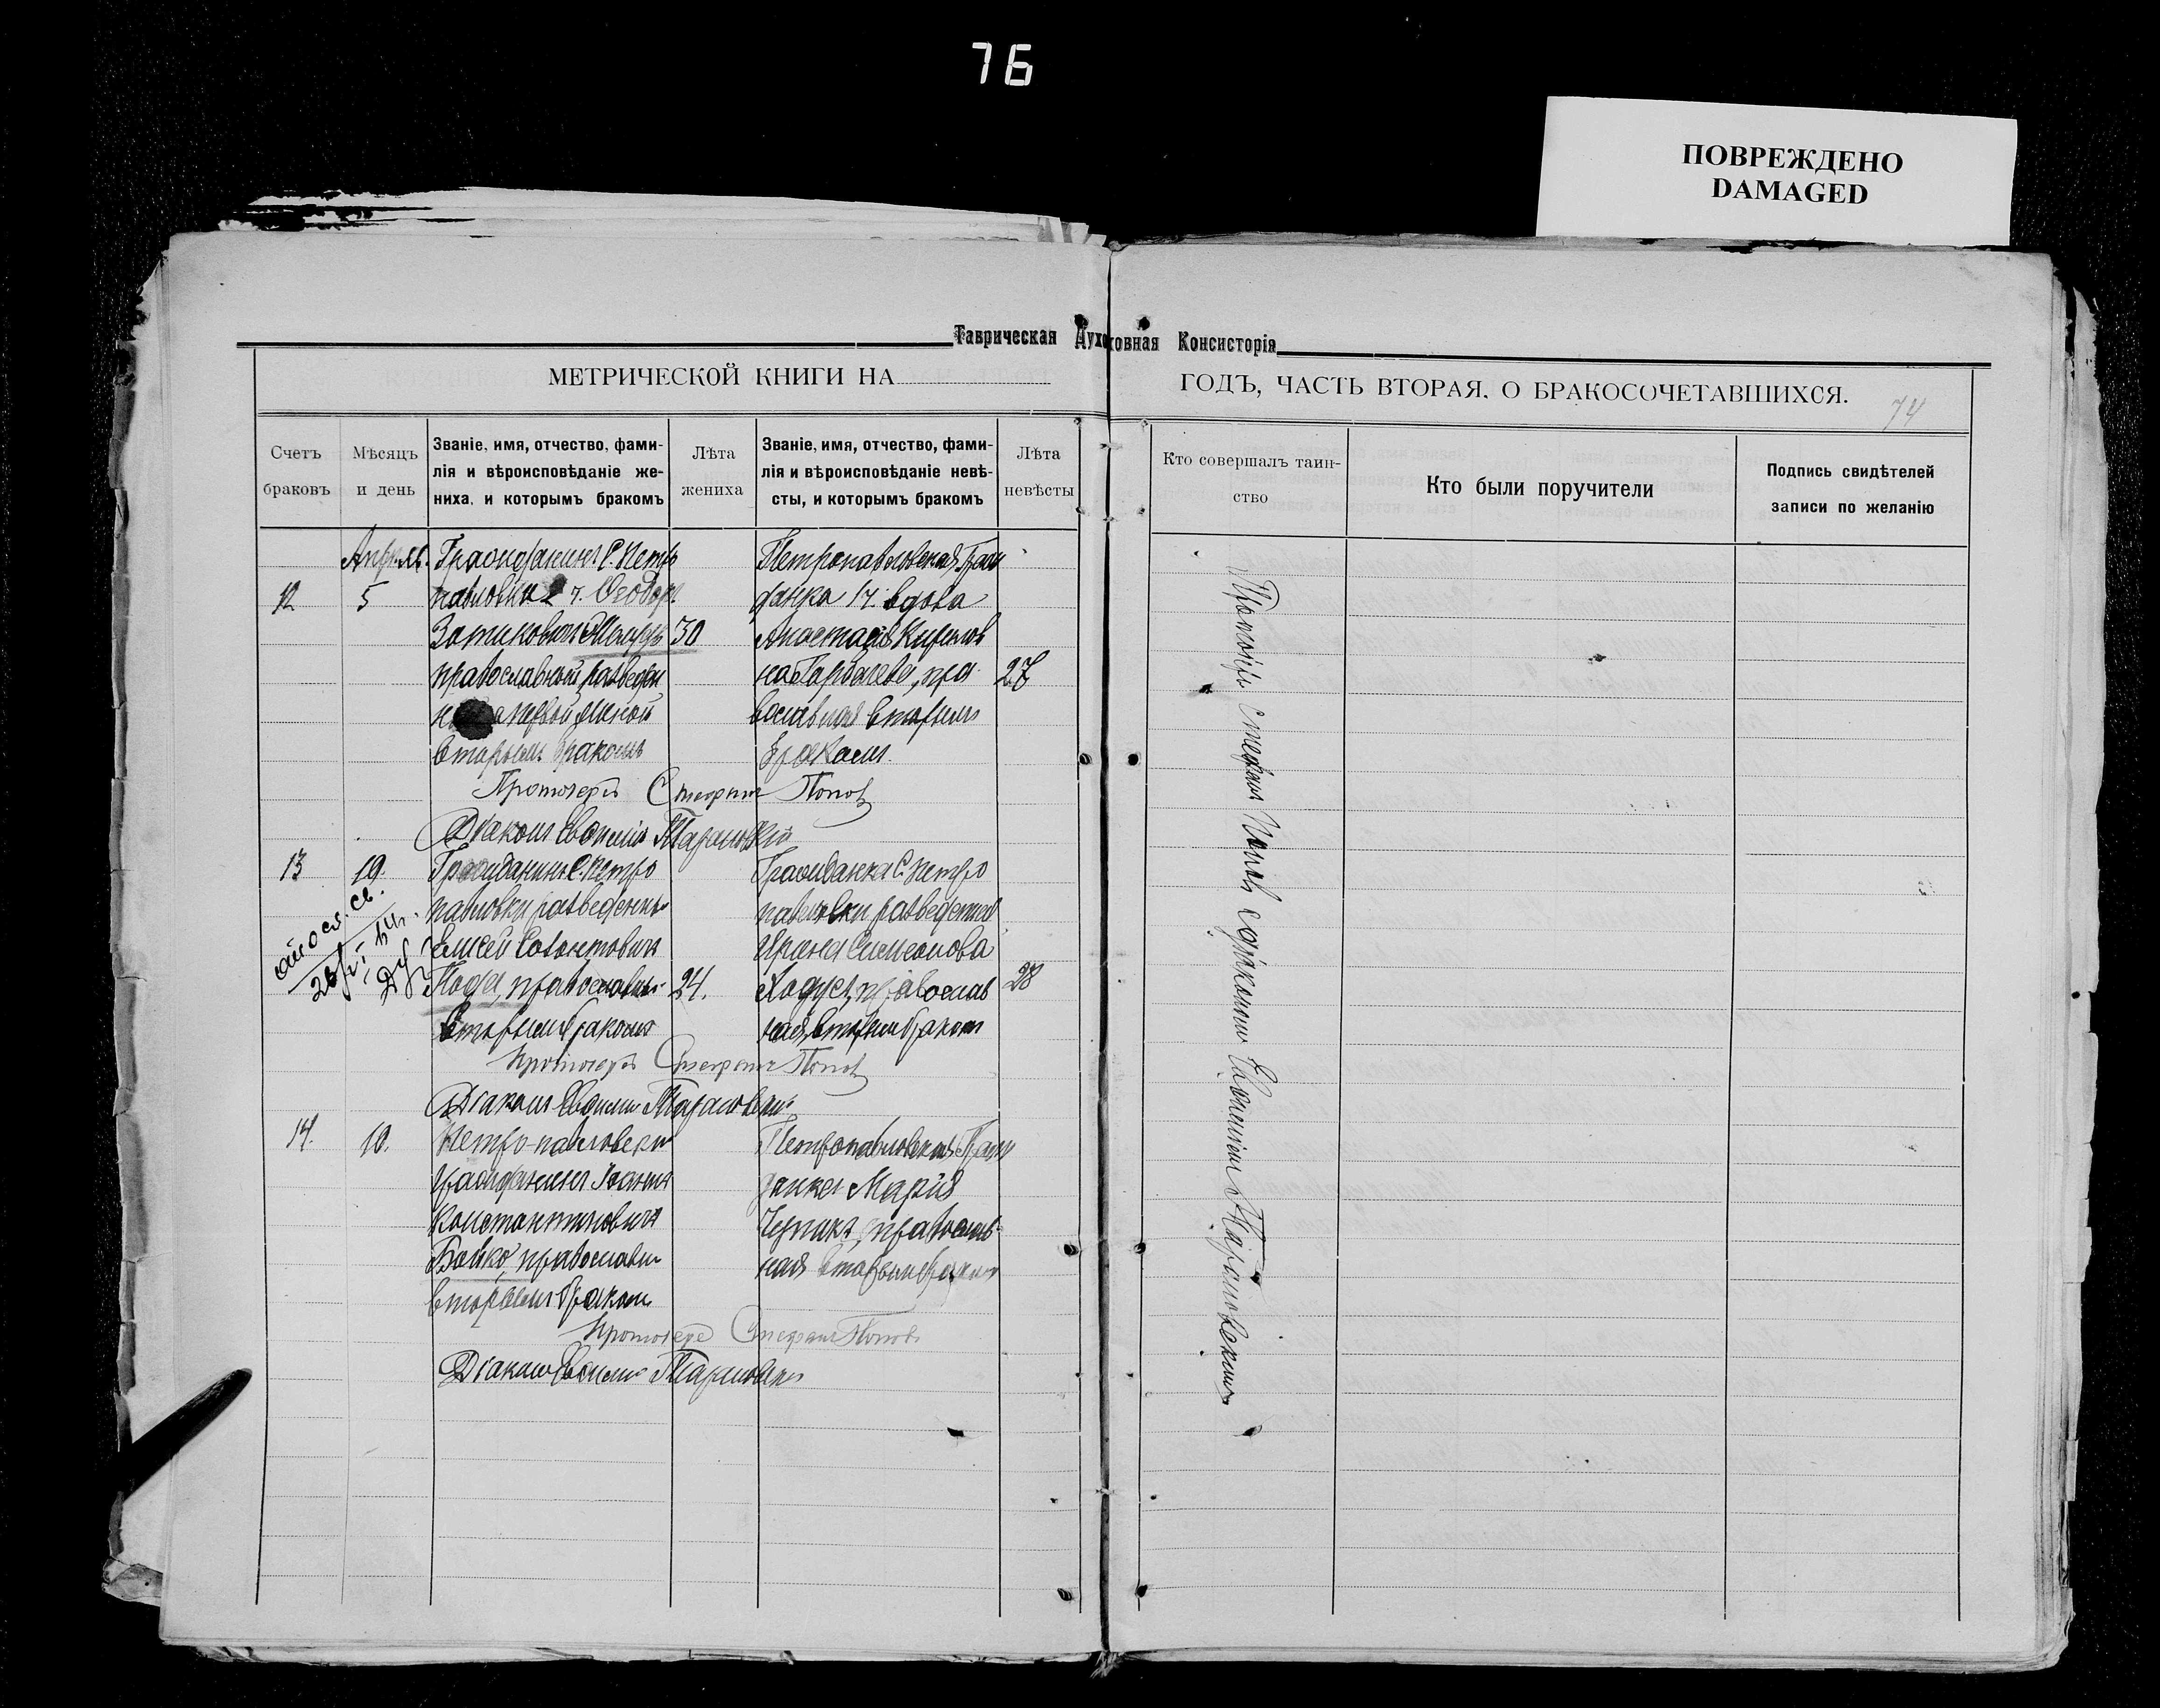 76
ПОВРЕЖДЕНО
DAMAGED
Таврическая Духовная Консисторія
МЕТРИЧЕСКОЙ КНИГИ НА
ГОДЪ, ЧАСТЬ ВТОРАЯ, О БРАКОСОЧЕТАВШИХСЯ.
74
Счетъ браковъ
Мѣсяцъ и день
Званіе, имя, отчество, фами-
лія и вѣроисповѣданіе же-
ниха, и которымъ бракомъ
Лѣта жениха
Званіе, имя, отчество, фами-
лія и вѣроисповѣданіе невѣ-
сты, и которымъ бракомъ
Лѣта невѣсты
Кто совершалъ таин-
ство
Кто были поручители
Подпись свидѣтелей
записи по желанію
12
Апрель
5
Гражданинъ С. Петро
павловки 2 ч. Ѳеодоръ
Зотиковичъ
православный разведен
первой женой
вторымъ бракомъ
30
Петропавловская граж
данка 1 ч. вдова
Анастасія Кирилов
на Горбачева, пра
вославная вторымъ
бракомъ.
27
Протоіерей Стефанъ Поповъ
Діаконъ Евфимій Тарановскій
13
19.
Гражданинъ С. Петро
павловки разведенный
Елисей
православный
вторымъ бракомъ
24.
Гражданка С. Петро
павловки разведенная
Ирина Симеонова
Ходус, православ
ная, вторымъ бракомъ
28
Протоіерей Стефанъ Поповъ
Діаконъ Евфимій Тарановскій
14.
19.
Петро-павловскій
гражданинъ Іоаннъ
Константиновичъ
Бойко, православный
вторымъ бракомъ
Петропавловская граж
данка Марія
православ
ная вторымъ бракомъ
Протоіерей Стефанъ Поповъ
Діаконъ Евфимій Тарановскій
Протоіерей Стефанъ Поповъ съ діакономъ Евфиміемъ Тарановскимъ